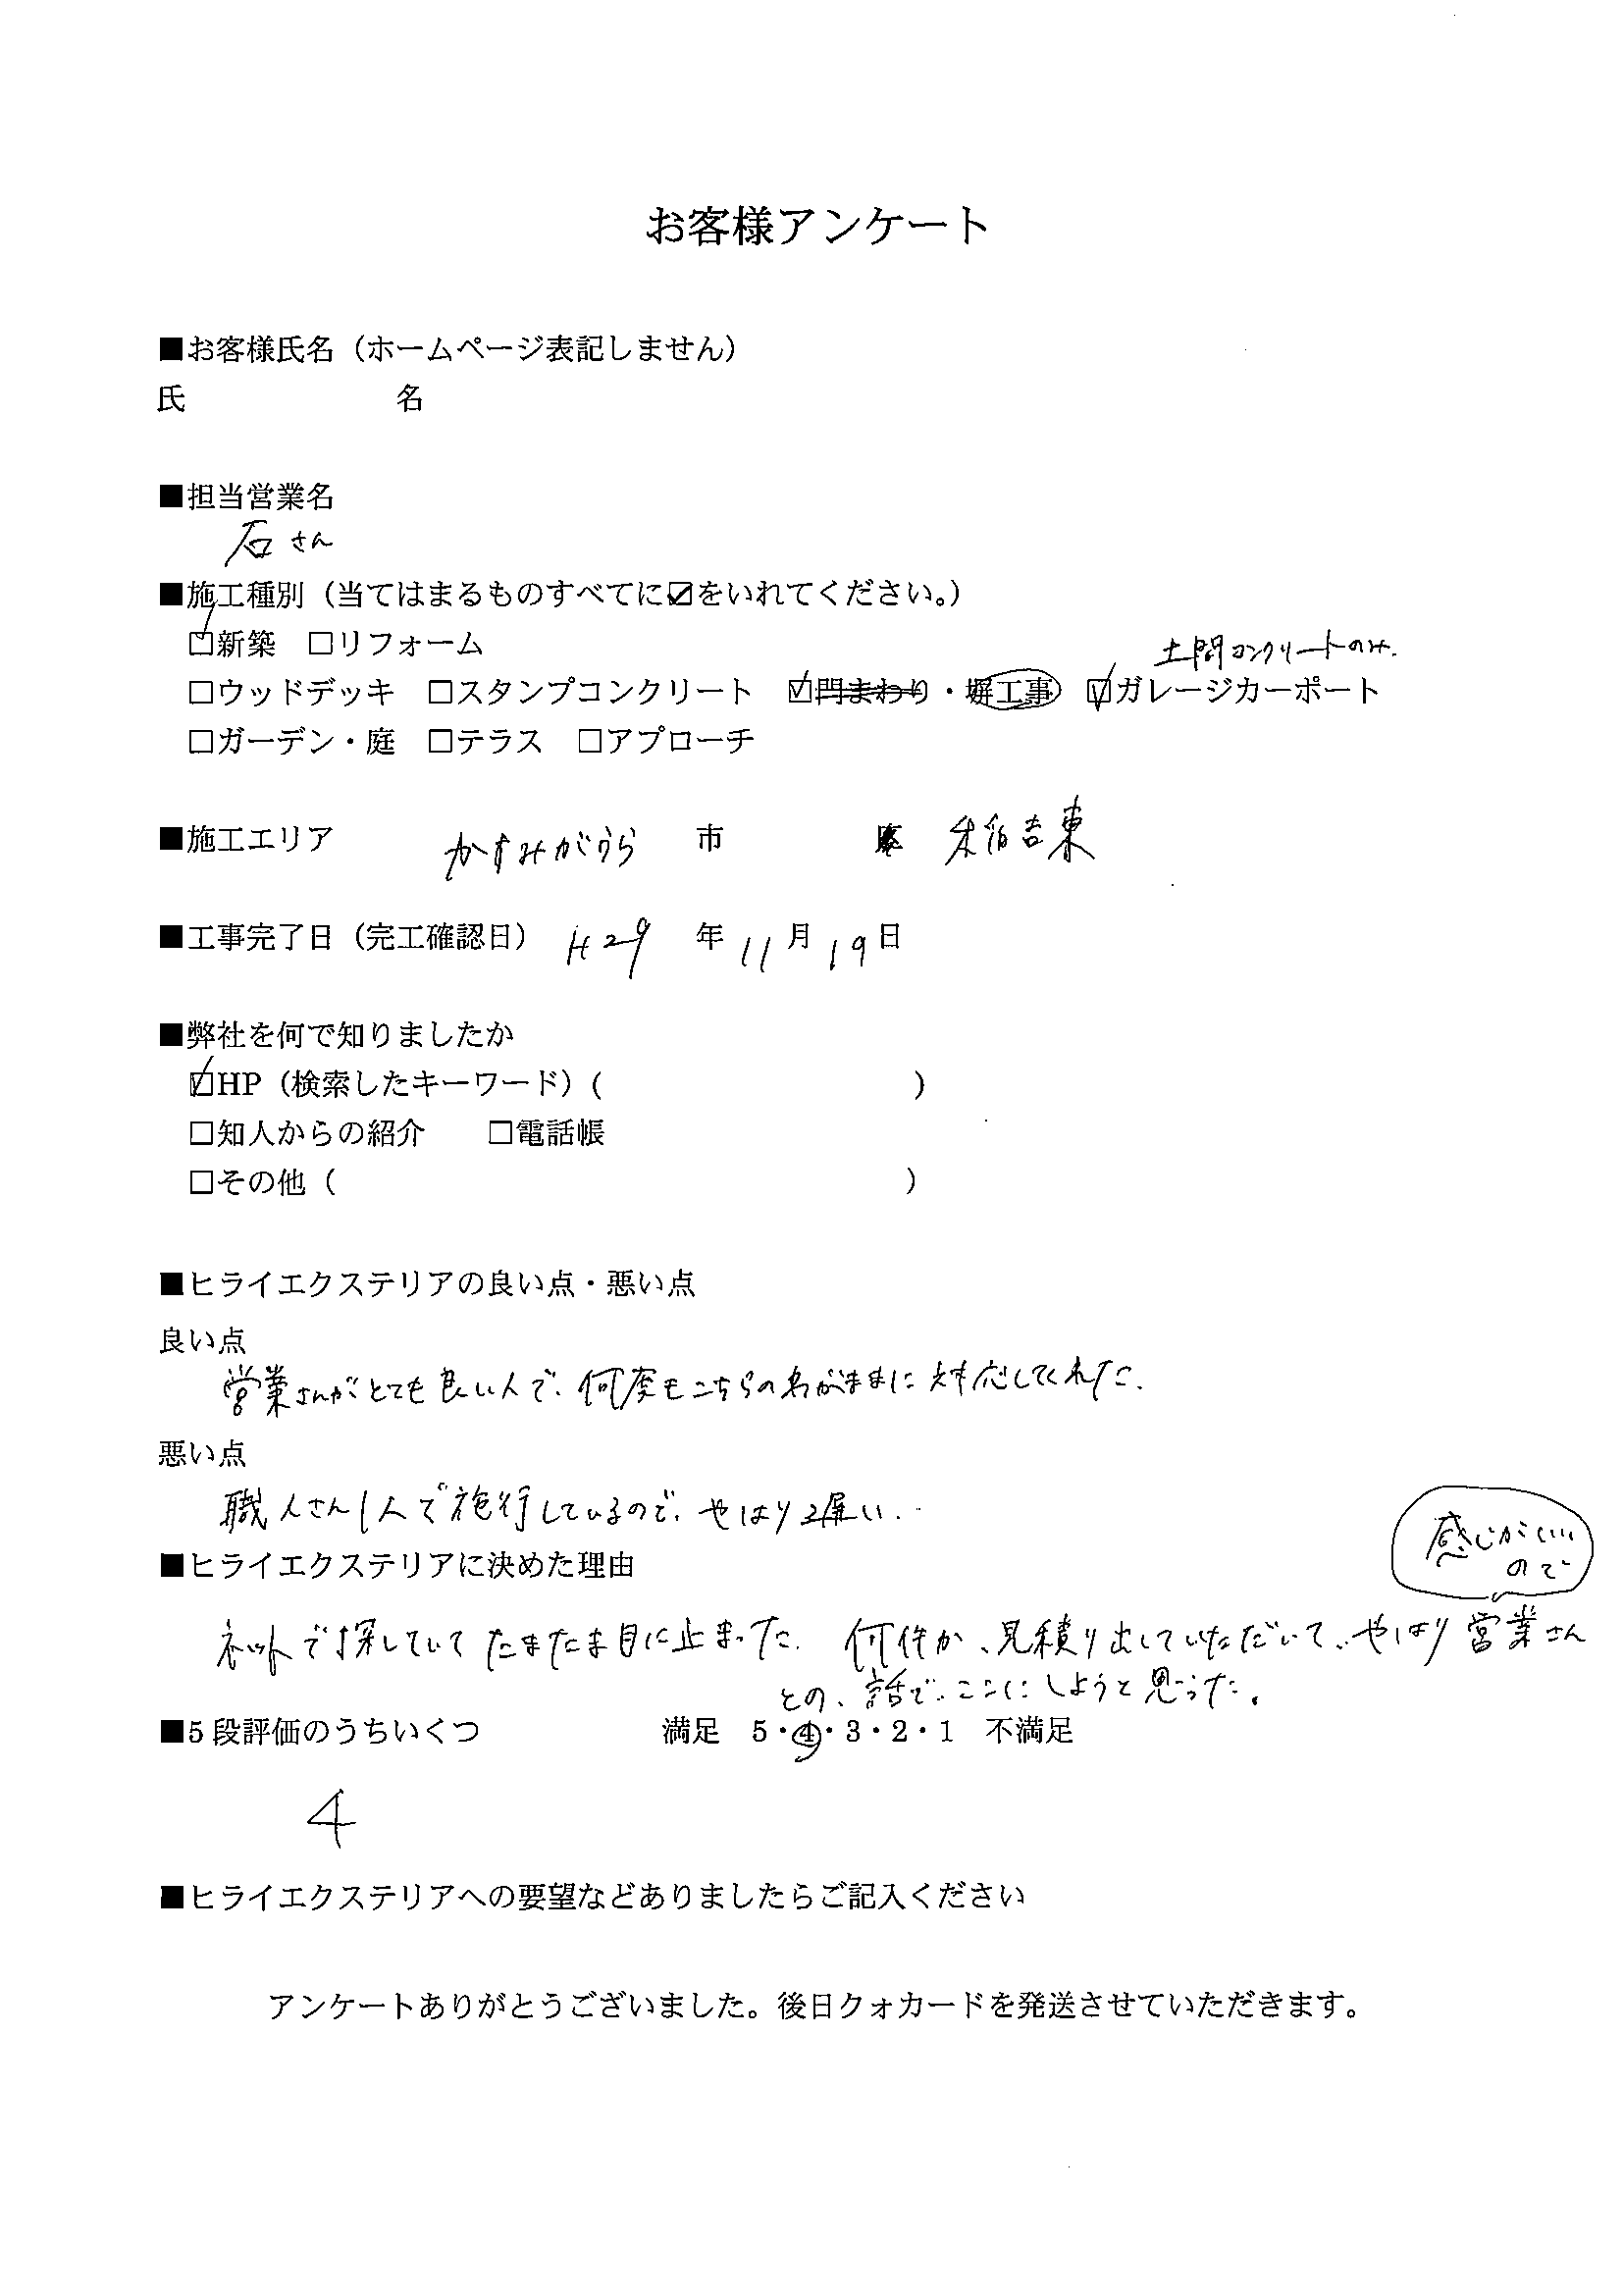 お客様アンケート
■お客様氏名（ホームページ表記しません）
氏　名
■担当営業名
石さん
■施工種別（当てはまるものすべてに☑をいれてください。）
☑新築　□リフォーム
土間コンクリートのみ.
□ウッドデッキ　□スタンプコンクリート　☑門まわり・塀工事　☑ガレージカーポート
□ガーデン・庭　□テラス　□アプローチ
■施工エリア　かすみがうら　市　稲吉東
■工事完了日（完工確認日）　H29　年　11　月　19　日
■弊社を何で知りましたか
☑HP（検索したキーワード）(　)
□知人からの紹介　□電話帳
□その他（　）
■ヒライエクステリアの良い点・悪い点
良い点
営業さんがとても良い人で、何度もこちらのわがままに対応してくれた.
悪い点
職人さん1人で施行しているので、やはり遅い..
■ヒライエクステリアに決めた理由
感じがいい
ので
ネットで探していてたまたま目に止まった. 何件か、見積り出していただいて、やはり営業さん
との、話で、ここにしようと思った。
■5段評価のうちいくつ　満足　5・4・3・2・1　不満足
4
■ヒライエクステリアへの要望などありましたらご記入ください
アンケートありがとうございました。後日クォカードを発送させていただきます。